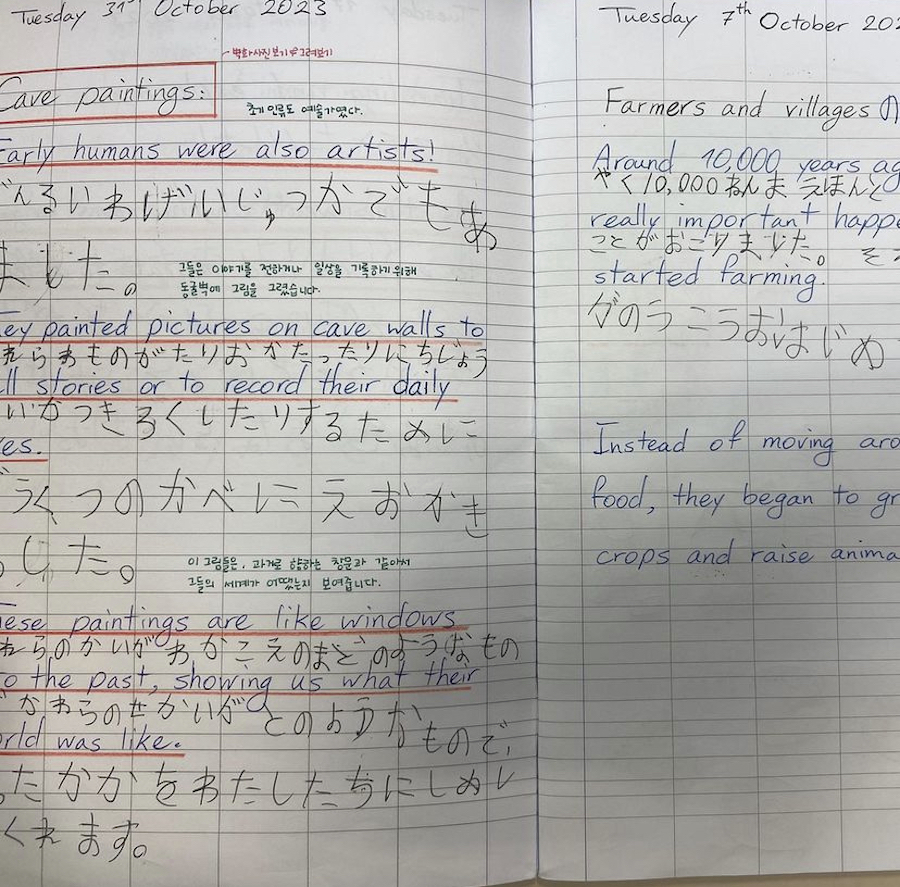 Tuesday 31st October 2023
벽화사진 보기 & 그려보기
Cave paintings:
초기 인류도 예술가였다.
Early humans were also artists!
んるいわげいじゅつかでもあ
ました。
그들은 이야기를 전하거나 일상을 기록하기 위해
동굴벽에 그림을 그렸습니다.
ey painted pictures on cave walls to
れらわものがたりおかたったりにちじょう
ll stories or to record their daily
いかつきろくしたりするために
es.
うくつのかべにえおかき
した。
이 그림들은, 과거로 향하는 창문과 같아서
그들의 세계가 어땠는지 보여줍니다.
ese paintings are like windows
れらのかいがわかこえのまどのようなもの
o the past, showing us what their
かわらのせかいが どのようなもので,
orld was like.
たかかをわたしたちにしめし
くれます。
Tuesday 7th October 202
Farmers and villages の
Around 10,000 years ag
やく10,000ねんまえほんと
really important happe
ことがおこりました。そ
started farming.
がのうこうおはじめ
Instead of moving aro
food, they began to gr
crops and raise anima